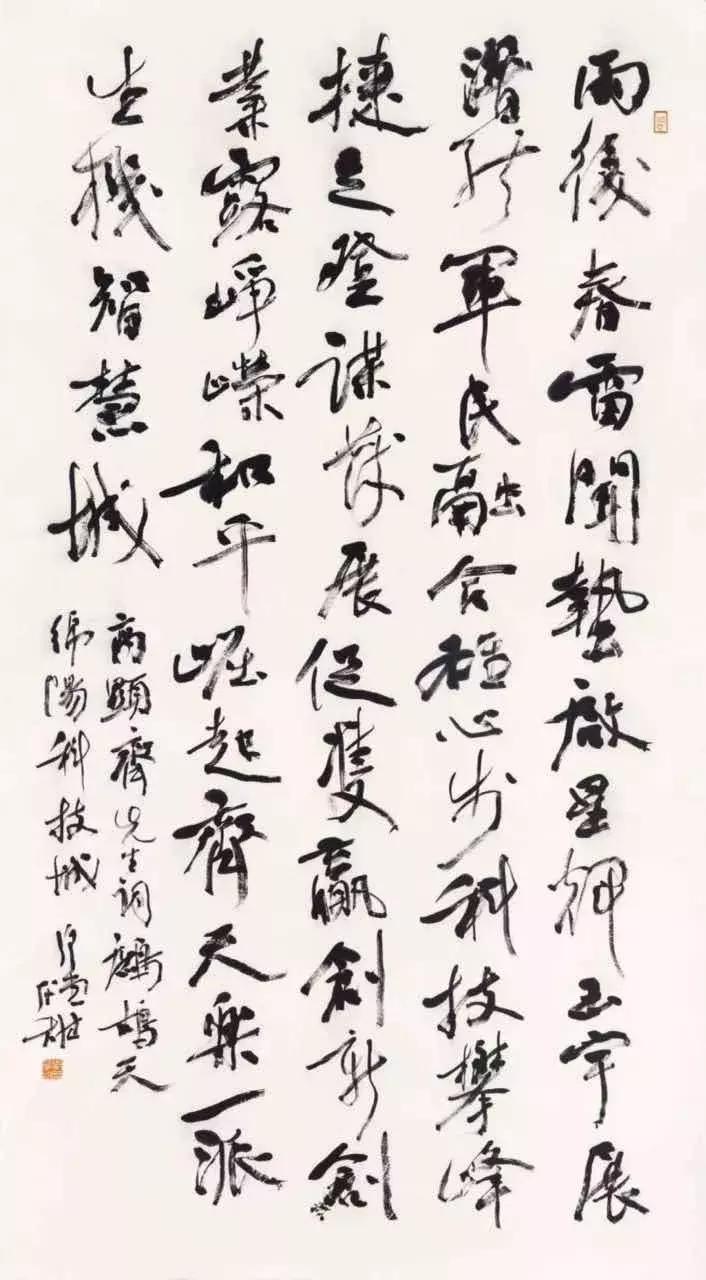 雨後春雷聞蟄啟星輝玉宇展
潛能軍民融合穩心步科技攀峰
捷足登謀發展促雙贏創新創
業露崢嶸和平崛起齊天樂一派
生機智慧城
顯齊先生詞鷓鴣天
綿陽科技城